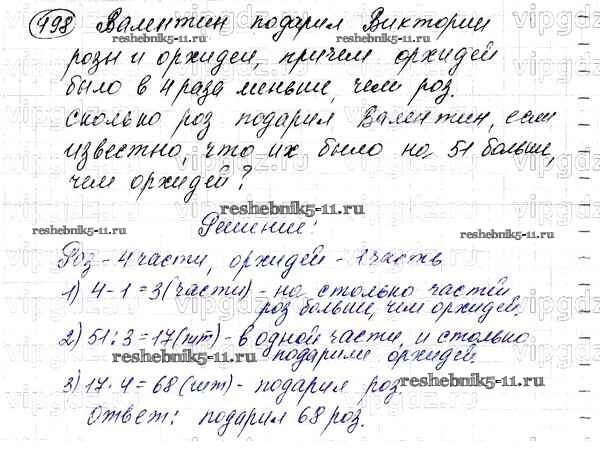 498 Валентин подарил Виктории
reshebnik5-11.ru reshebnik5-11.ru
розы и орхидеи, причем орхидей
было в 4 раза меньше, чем роз.
Сколько роз подарил Валентин, если
известно, что их было на 51 больше,
чем орхидей?
reshebnik5-11.ru
Решение:
reshebnik5-11.ru
Роз - 4 части, орхидей - 1 часть
1) 4-1=3 (части) - на столько частей
роз больше, чем орхидей.
2) 51:3=17 (шт) - в одной части, и столько
подарили орхидей
reshebnik5-11.ru
3) 17·4=68 (шт) - подарил роз.
reshebnik5-11.ru
Ответ: подарил 68 роз.